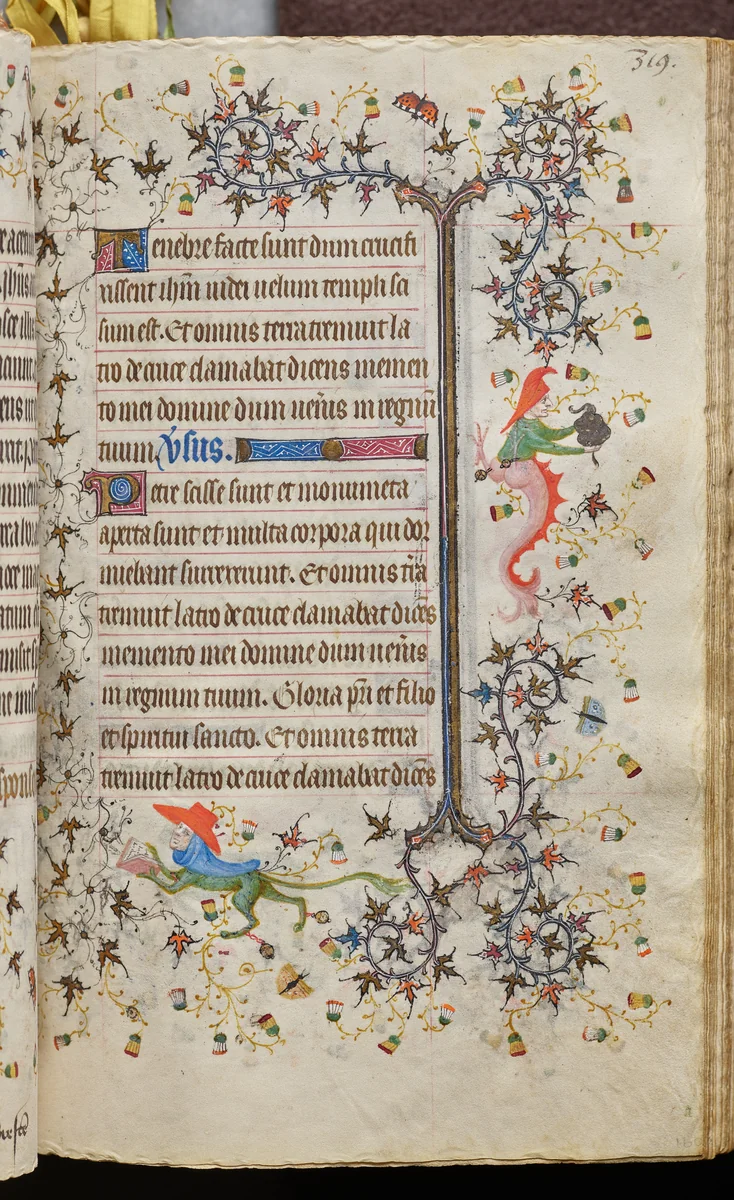 319.
Tenebre facte sunt dum crucifi
xissent ihm iudei uelum templi sci
sum est. Et omnis terra tremuit la
tro de cruce clamabat dicens memen
to mei domine dum uenis in regnū
tuum. Vsus.
Petre scisse sunt et monumeta
aperta sunt et multa corpora qui dor
miebant surrexerunt. Et omnis tr̄a
tremuit latro de cruce clamabat dicēs
memento mei domine dum uen̄is
in regnum tuum. Gloria pr̄i et filio
et spiritui sancto. Et omnis terra
tremuit latro de cruce clamabat dicēs